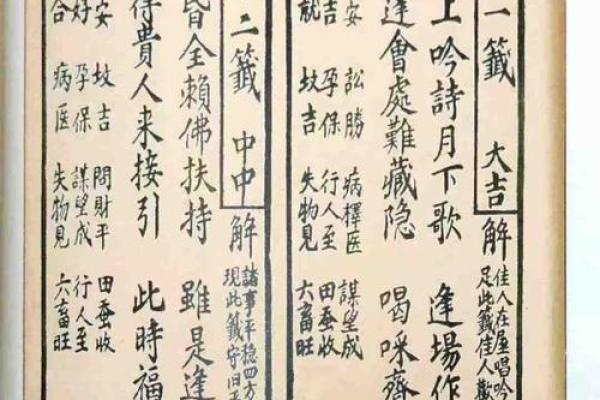 一籤 大吉 解
佳人在屋唱吟
足此籤佳人
上吟詩月下歌 逢場作
逢會處難藏隐 喝啋齊
安 訟勝 病擇医 謀望成
吉 孕保 行人至 田蚕收
就 坟吉 失物見 六畜旺
二籤 中中 解
諸事平稳四方
現此籤守旧
昏全賴佛扶持 雖是逢
貴人来接引 此時福
安 坟吉 問財平 田蚕收
好 孕保 謀望成 行人至
合 病医 失物見 六畜旺